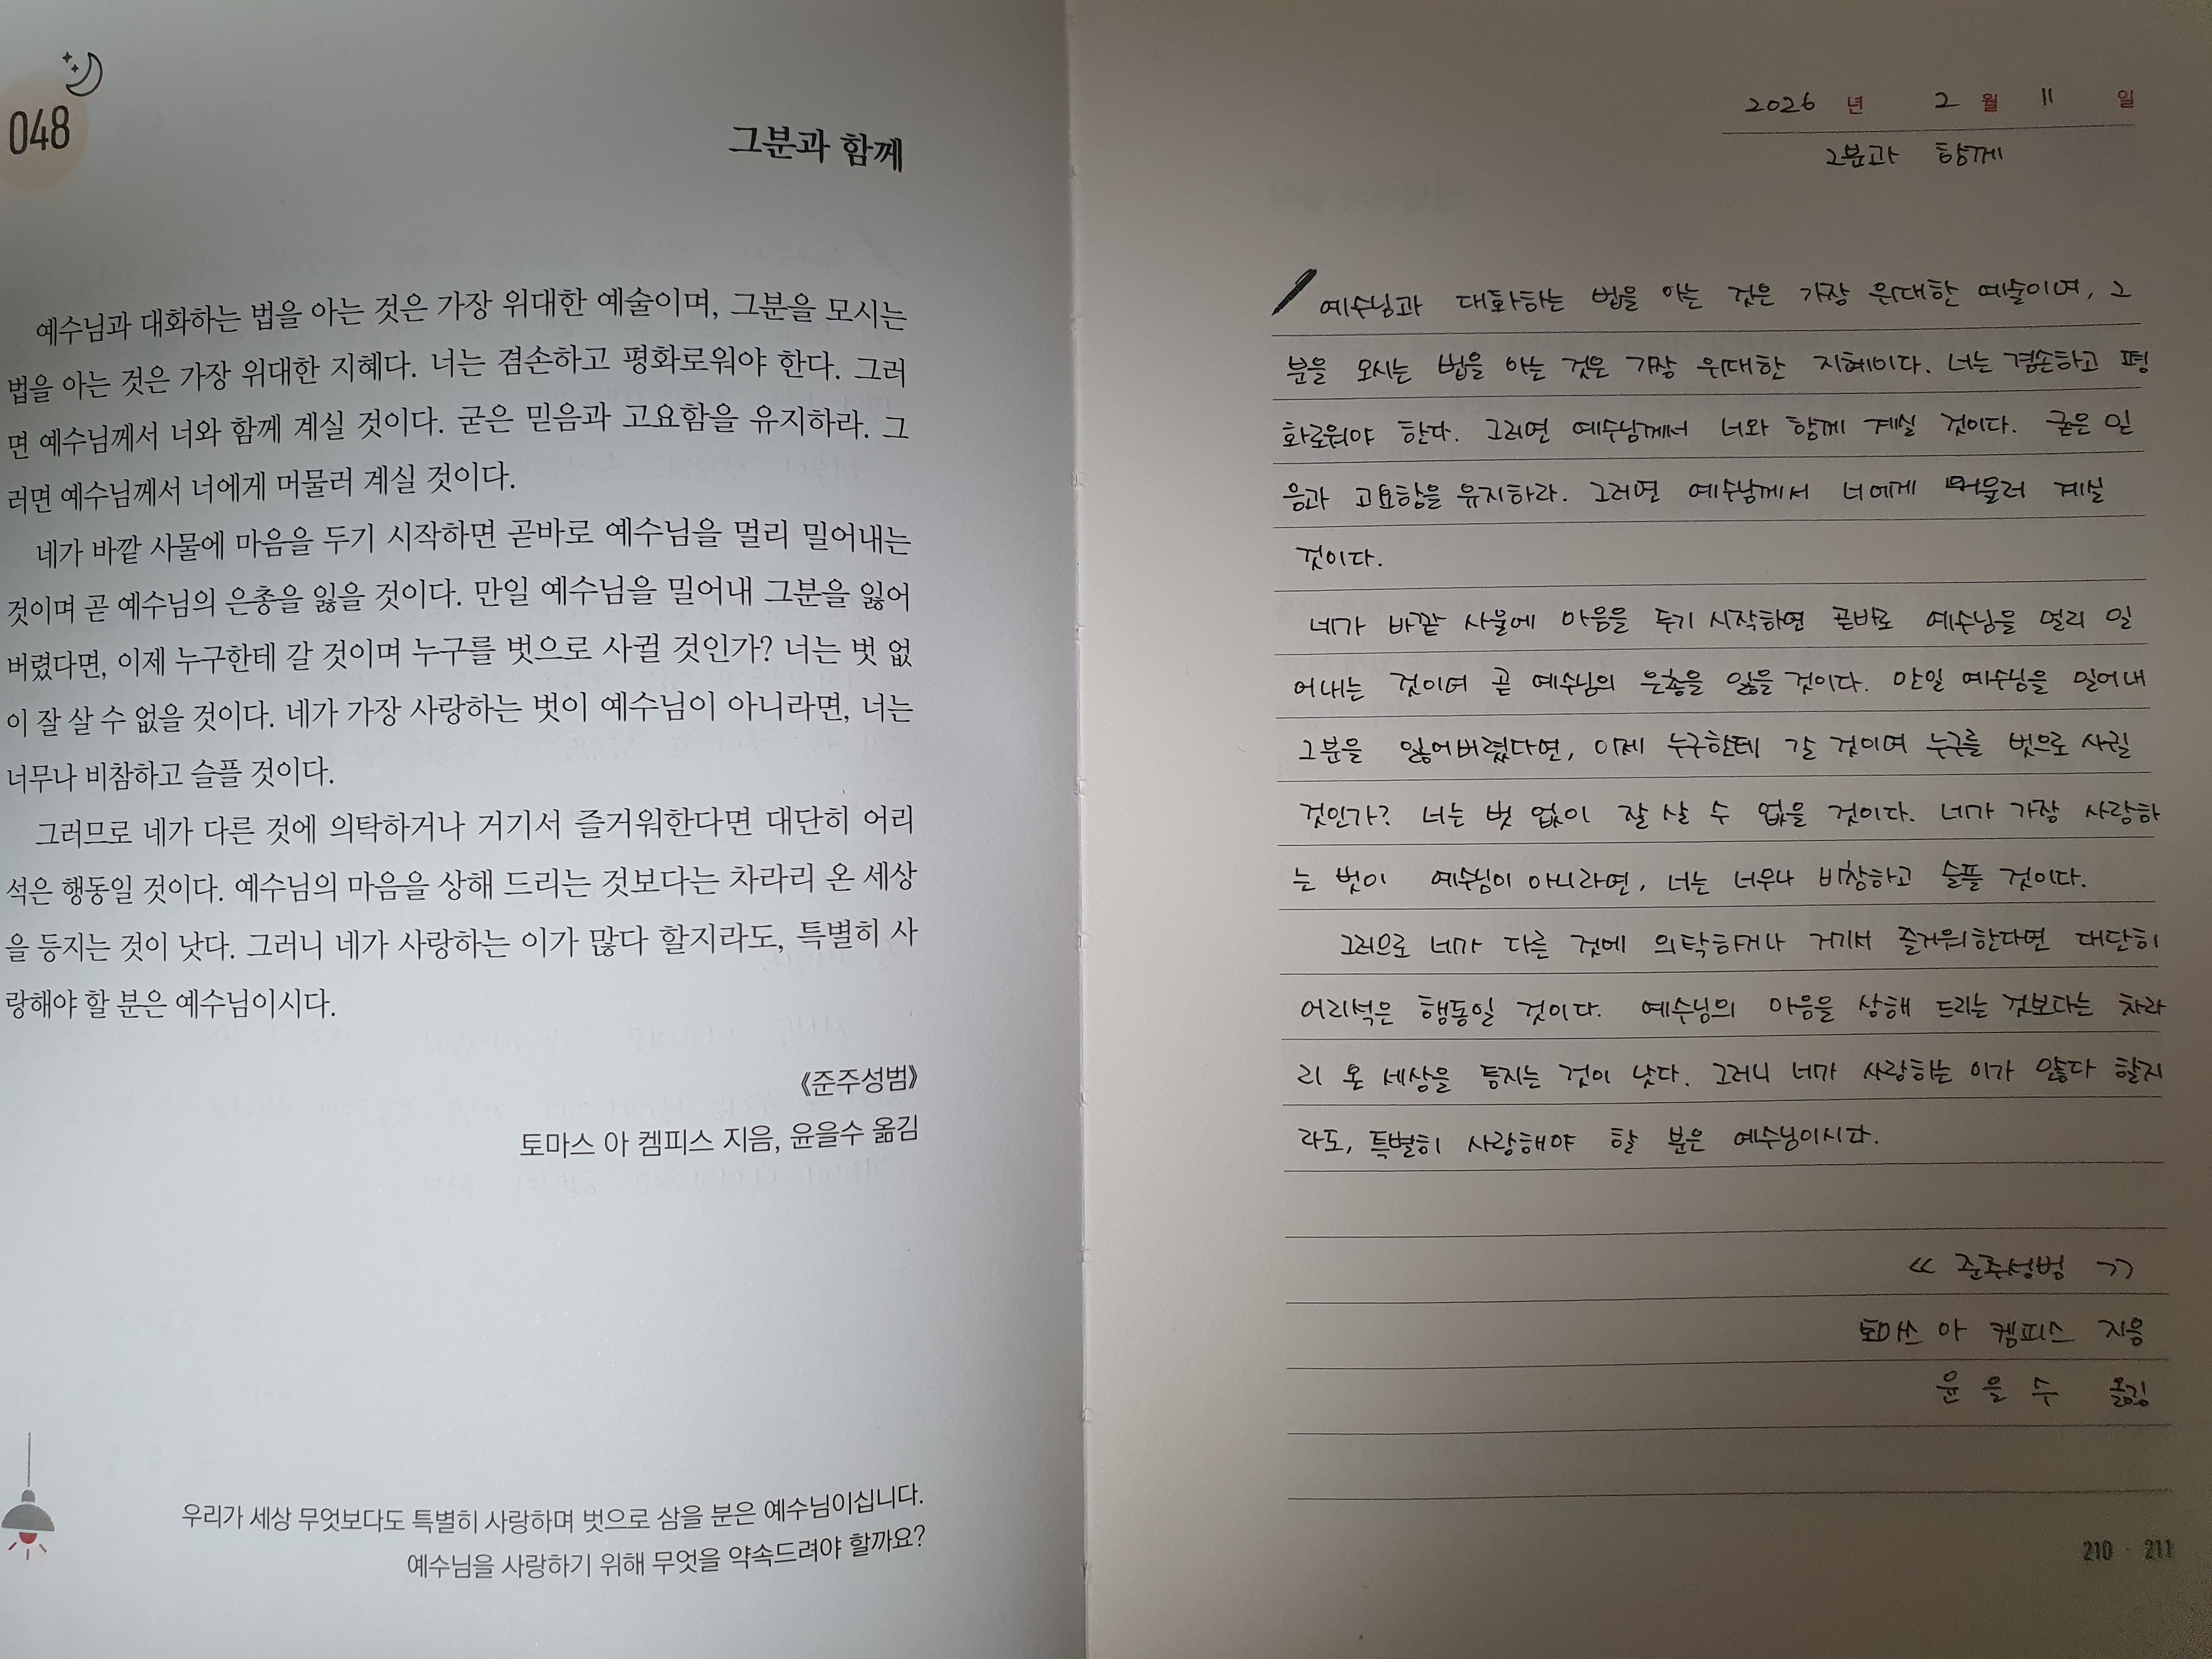 048
그분과 함께
예수님과 대화하는 법을 아는 것은 가장 위대한 예술이며, 그분을 모시는
법을 아는 것은 가장 위대한 지혜다. 너는 겸손하고 평화로워야 한다. 그러
면 예수님께서 너와 함께 계실 것이다. 굳은 믿음과 고요함을 유지하라. 그
러면 예수님께서 너에게 머물러 계실 것이다.
네가 바깥 사물에 마음을 두기 시작하면 곧바로 예수님을 멀리 밀어내는
것이며 곧 예수님의 은총을 잃을 것이다. 만일 예수님을 밀어내 그분을 잃어
버렸다면, 이제 누구한테 갈 것이며 누구를 벗으로 사귈 것인가? 너는 벗 없
이 잘 살 수 없을 것이다. 네가 가장 사랑하는 벗이 예수님이 아니라면, 너는
너무나 비참하고 슬플 것이다.
그러므로 네가 다른 것에 의탁하거나 거기서 즐거워한다면 대단히 어리
석은 행동일 것이다. 예수님의 마음을 상해 드리는 것보다는 차라리 온 세상
을 등지는 것이 낫다. 그러니 네가 사랑하는 이가 많다 할지라도, 특별히 사
랑해야 할 분은 예수님이시다.
《준주성범》
토마스 아 켐피스 지음, 윤을수 옮김
우리가 세상 무엇보다도 특별히 사랑하며 벗으로 삼을 분은 예수님이십니다.
예수님을 사랑하기 위해 무엇을 약속드려야 할까요?
2026 년 2 월 11 일
그분과 함께
예수님과 대화하는 법을 아는 것은 가장 위대한 예술이며, 그
분을 모시는 법을 아는 것은 가장 위대한 지혜이다. 너는 겸손하고 평
화로워야 한다. 그러면 예수님께서 너와 함께 계실 것이다. 굳은 믿
음과 고요함을 유지하라. 그러면 예수님께서 너에게 머물러 계실
것이다.
네가 바깥 사물에 마음을 두기 시작하면 곧바로 예수님을 멀리 밀
어내는 것이며 곧 예수님의 은총을 잃을 것이다. 만일 예수님을 밀어내
그분을 잃어버렸다면, 이제 누구한테 갈 것이며 누구를 벗으로 사귈
것인가? 너는 벗 없이 잘 살 수 없을 것이다. 네가 가장 사랑하
는 벗이 예수님이 아니라면, 너는 너무나 비참하고 슬플 것이다.
그러므로 네가 다른 것에 의탁하거나 거기서 즐거워한다면 대단히
어리석은 행동일 것이다. 예수님의 마음을 상해 드리는 것보다는 차라
리 온 세상을 등지는 것이 낫다. 그러니 네가 사랑하는 이가 많다 할지
라도, 특별히 사랑해야 할 분은 예수님이시다.
<< 준주성범 >>
토마스 아 켐피스 지음
윤 을 수 옮김
210 · 211